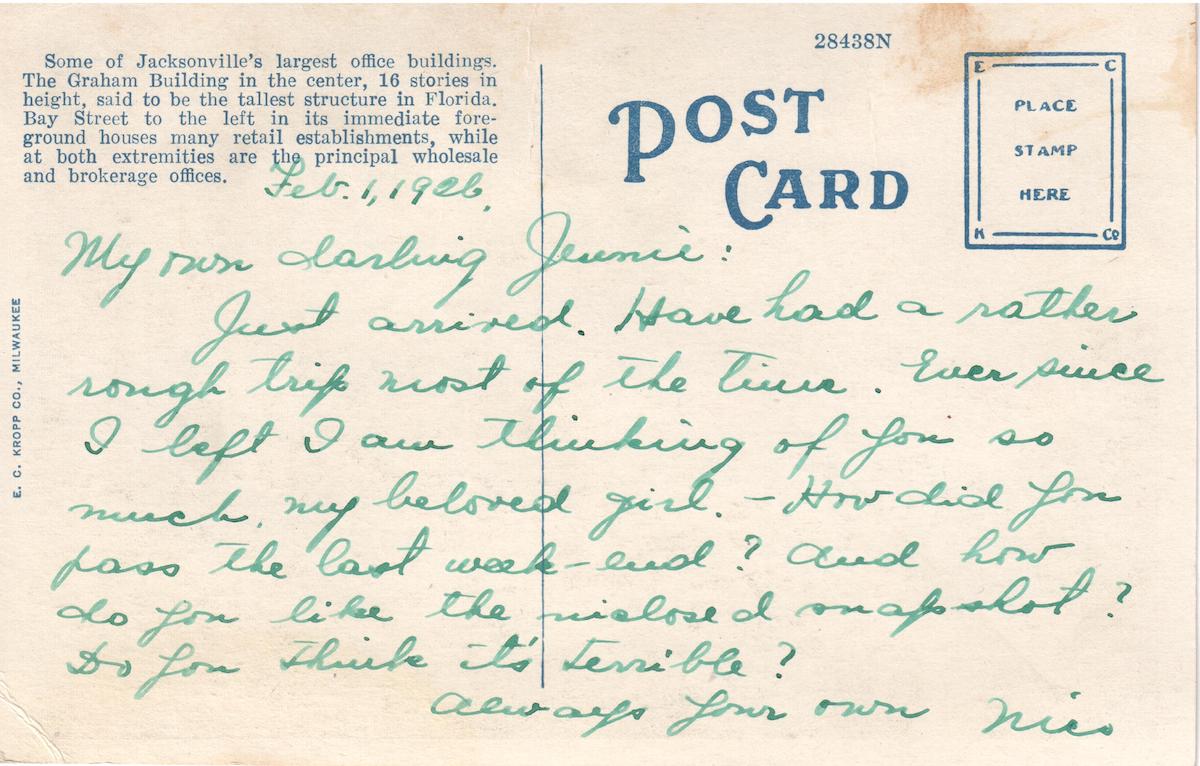 Some of Jacksonville's largest office buildings.
The Graham Building in the center, 16 stories in
height, said to be the tallest structure in Florida.
Bay Street to the left in its immediate fore-
ground houses many retail establishments, while
at both extremities are the principal wholesale
and brokerage offices.
28438N
POST
CARD
E C
PLACE
STAMP
HERE
K Co
E. C. KROPP CO., MILWAUKEE
Feb. 1, 1926.
My own darling Jennie:
Just arrived. Have had a rather
rough trip most of the time. Ever since
I left I am thinking of you so
much, my beloved girl. – How did you
pass the last week-end? And how
do you like the inclosed snapshot?
Do you think it's terrible?
Always your own Nico